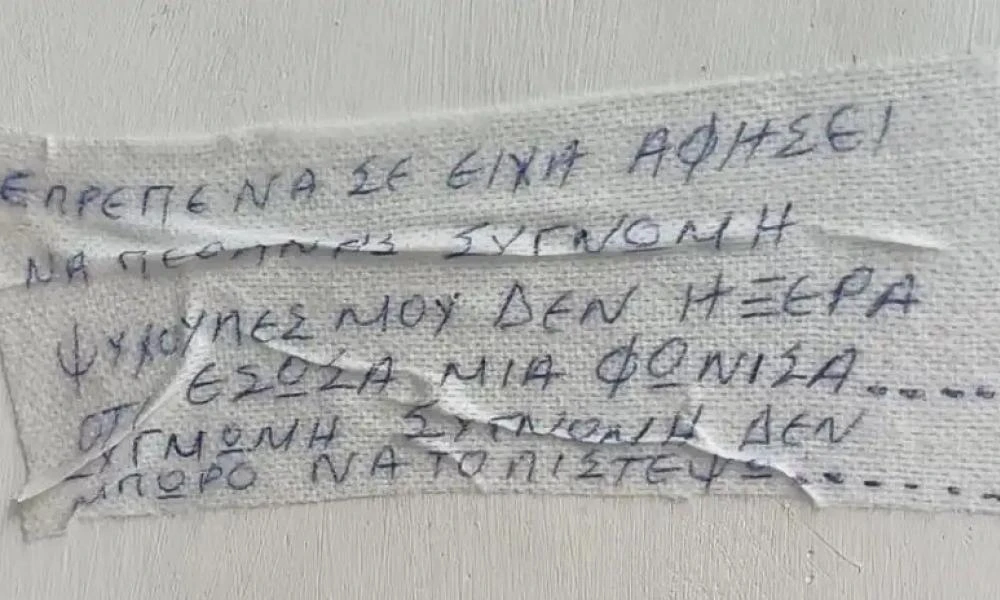 ΕΠΡΕΠΕ ΝΑ ΣΕ ΕΙΧΑ ΑΦΗΣΕΙ
ΝΑ ΠΕΘΑΝΕΙΣ ΣΥΓΝΟΜΗ
ΨΥΧΟΥΛΕΣ ΜΟΥ ΔΕΝ ΗΞΕΡΑ
ΕΣΩΣΑ ΜΙΑ ΦΩΝΙΣΑ....
ΣΥΓΝΩΜΗ ΔΕΝ
ΜΠΩΡΟ ΝΑ ΤΟ ΠΙΣΤΕΨΩ......